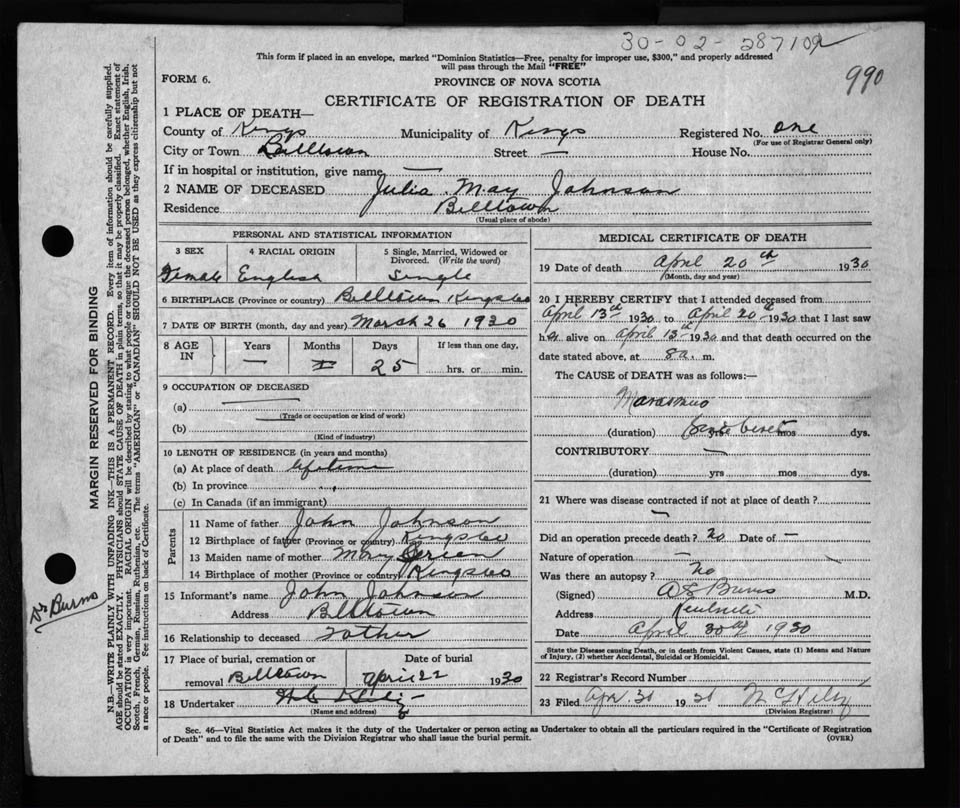 30-02-287109
This form if placed in an envelope, marked "Dominion Statistics—Free, penalty for improper use, $300," and properly addressed
will pass through the Mail "FREE"
990
FORM 6.
PROVINCE OF NOVA SCOTIA
CERTIFICATE OF REGISTRATION OF DEATH
1 PLACE OF DEATH—
County of Kings Municipality of Kings Registered No. one
(For use of Registrar General only)
City or Town Billtown Street — House No.
If in hospital or institution, give name —
2 NAME OF DECEASED Julia May Johnson
Residence Billtown
(Usual place of abode)
PERSONAL AND STATISTICAL INFORMATION
3 SEX Female
4 RACIAL ORIGIN English
5 Single, Married, Widowed or Divorced. (Write the word) Single
6 BIRTHPLACE (Province or country) Billtown Kings Co
7 DATE OF BIRTH (month, day and year) March 26 1930
8 AGE IN Years Months Days If less than one day,
— 25 hrs. or min.
9 OCCUPATION OF DECEASED
(a)
(Trade or occupation or kind of work)
(b)
(Kind of industry)
10 LENGTH OF RESIDENCE (in years and months)
(a) At place of death lifetime
(b) In province "
(c) In Canada (if an immigrant)
Parents
11 Name of father John Johnson
12 Birthplace of father (Province or country) Kings Co
13 Maiden name of mother Mary
14 Birthplace of mother (Province or country) Kings Co
15 Informant's name John Johnson
Address Billtown
16 Relationship to deceased Father
17 Place of burial, cremation or removal Billtown Date of burial April 22 1930
18 Undertaker
(Name and address)
MEDICAL CERTIFICATE OF DEATH
19 Date of death April 20th 1930
(Month, day and year)
20 I HEREBY CERTIFY that I attended deceased from
April 13th 1930 to April 20th 1930 that I last saw
her alive on April 13th 1930 and that death occurred on the
date stated above, at 8 a. m.
The CAUSE of DEATH was as follows:—
Marasmus
(duration) yrs mos dys.
CONTRIBUTORY —
(duration) yrs mos dys.
21 Where was disease contracted if not at place of death?
—
Did an operation precede death? No Date of —
Nature of operation —
Was there an autopsy? No
(Signed) Burns M.D.
Address Kentville
Date April 30th 1930
State the Disease causing Death, or in death from Violent Causes, state (1) Means and Nature
of Injury, (2) whether Accidental, Suicidal or Homicidal.
22 Registrar's Record Number
23 Filed Apr. 30 1930
(Division Registrar)
Sec. 46—Vital Statistics Act makes it the duty of the Undertaker or person acting as Undertaker to obtain all the particulars required in the "Certificate of Registration
of Death" and to file the same with the Division Registrar who shall issue the burial permit.
(OVER)
MARGIN RESERVED FOR BINDING
N.B.—WRITE PLAINLY WITH UNFADING INK—THIS IS A PERMANENT RECORD. Every item of information should be carefully supplied.
AGE should be stated EXACTLY. PHYSICIANS should STATE CAUSE OF DEATH in plain terms, so that it may be properly classified. Exact statement of
OCCUPATION is very important. RACIAL ORIGIN will be described by stating to what people or tongue the deceased person belonged, whether English, Irish,
Scotch, French, German, Russian, Ruthenian, etc. The terms "AMERICAN" or "CANADIAN" SHOULD NOT BE USED as they express citizenship but not
a race or people. See instructions on back of Certificate.
Dr Burns